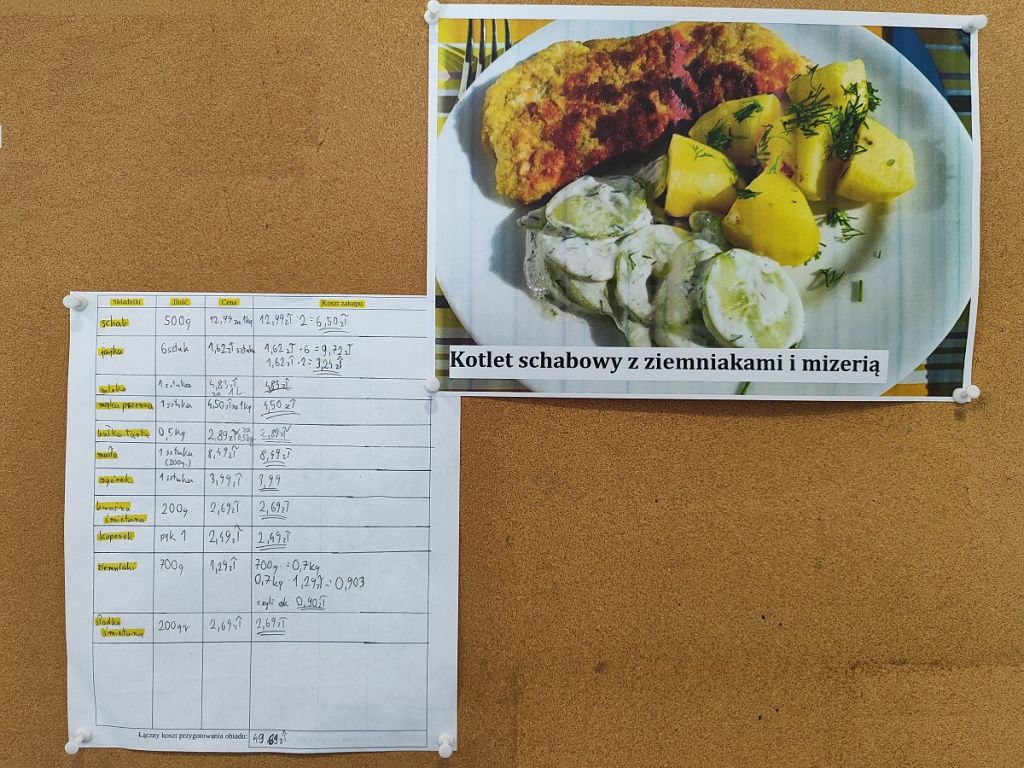 Kotlet schabowy z ziemniakami i mizerią
Składniki Ilość Cena Koszt zakupu
schab 500g 12,99 za 1kg 12,99zł : 2 = 6,50zł
jajka 6 sztuk 1,62zł sztuka 1,62zł · 6 = 9,72zł
1,62zł · 2 = 3,24zł
mleko 1 sztuka 4,83zł za 1L 4,83zł
mąka pszenna 1 sztuka 4,50zł za 1kg 4,50zł
bułka tarta 0,5kg 2,89zł za 0,5kg 2,89zł
masło 1 sztuka 8,49zł 8,49zł
(200g.)
ogórek 1 sztuka 3,99zł 3,99
kwaśna 200g. 2,69zł 2,69zł
śmietana
koperek pęk 1 2,49zł 2,49zł
ziemniaki 700g 1,29zł 700g = 0,7kg
0,7kg · 1,29zł = 0,903
czyli ok 0,90zł
słodka 200gr 2,69zł 2,69zł
śmietana
Łączny koszt przygotowania obiadu: 49,69zł